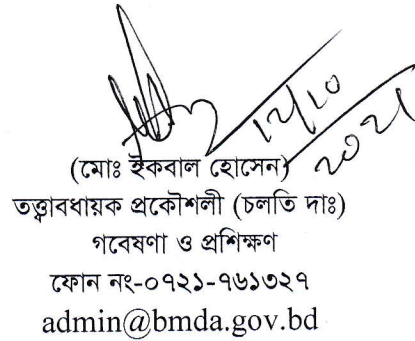 ১২/১০
২০২১
(মোঃ ইকবাল হোসেন)
তত্ত্বাবধায়ক প্রকৌশলী (চলতি দাঃ)
গবেষণা ও প্রশিক্ষণ
ফোন নং-০৭২১-৭৬১৩২৭
admin@bmda.gov.bd